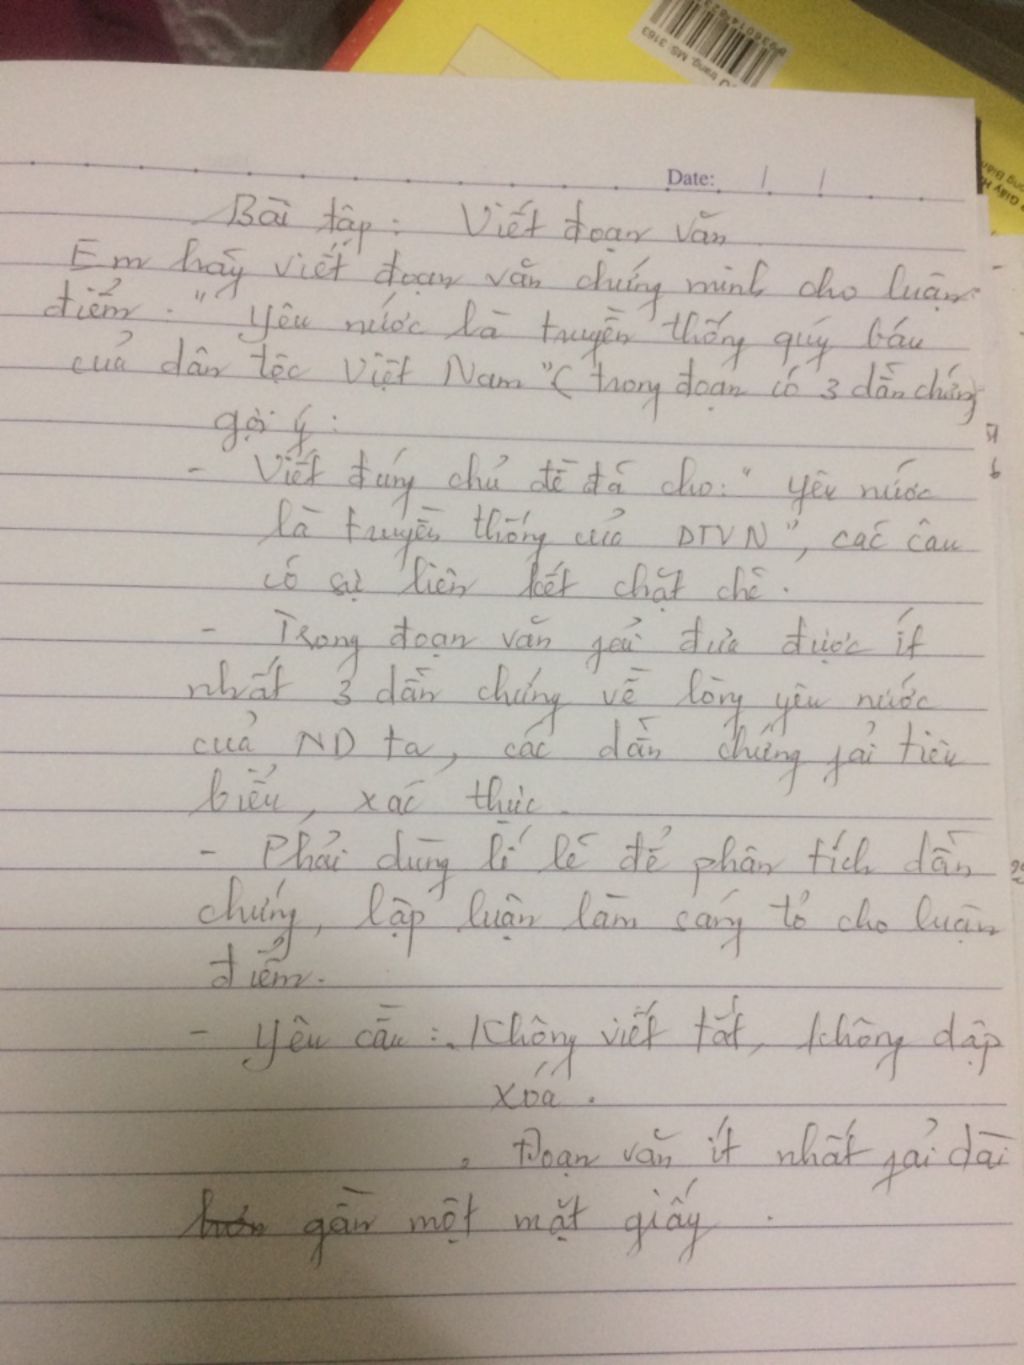 893601423
trang, MS: 3163
Giấy H
Date: / /
Bài tập: Viết đoạn văn
Em hãy viết đoạn văn chứng minh cho luận
điểm. "Yêu nước là truyền thống quý báu
của dân tộc Việt Nam" (trong đoạn có 3 dẫn chứng
gợi ý:
- Viết đúng chủ đề đã cho: "yêu nước
là truyền thống của DTVN", các câu
có sự liên kết chặt chẽ.
- Trong đoạn văn fải đưa được ít
nhất 3 dẫn chứng về lòng yêu nước
của ND ta, các dẫn chứng fải tiêu
biểu, xác thực.
- Phải dùng lí lẽ để phân tích dẫn
chứng, lập luận làm sáng tỏ cho luận
điểm.
- Yêu cầu: . Không viết tắt, không dập
xoá.
. Đoạn văn ít nhất fải dài
gần một mặt giấy.